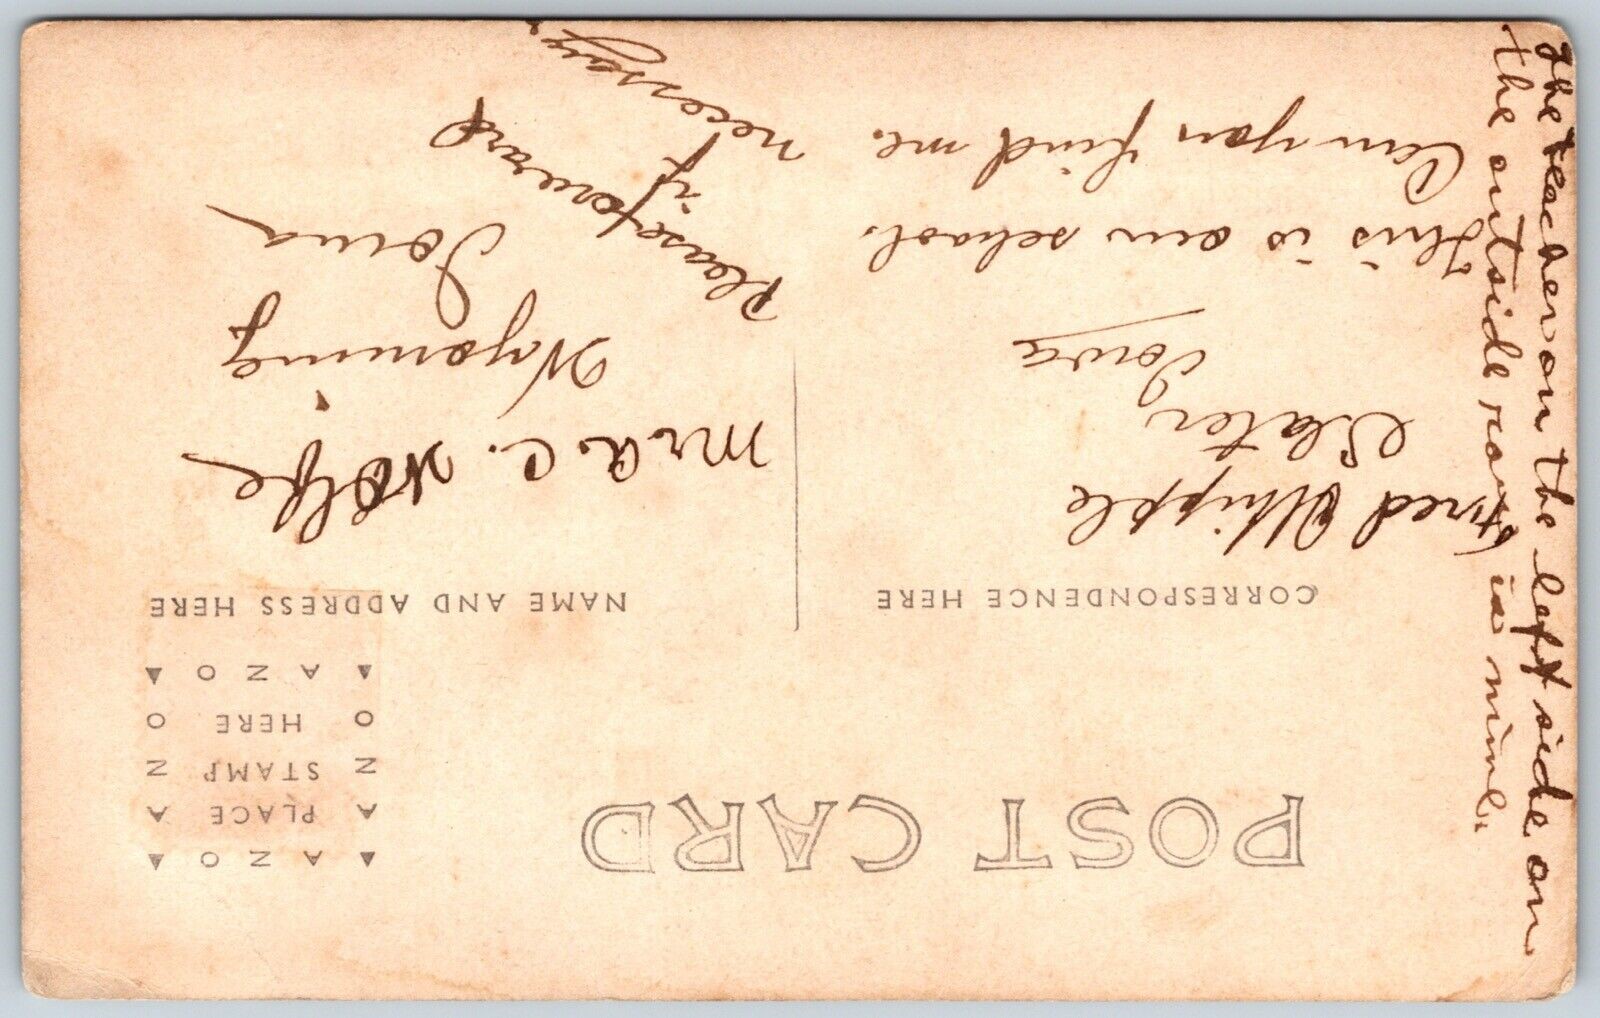 POST CARD
CORRESPONDENCE HERE
Fred Whipple
Slater,
Iowa
This is our school.
Can you find me.
The teacher on the left side on
the outside row is mine.
A Z O
A PLACE A
Z STAMP Z
O HERE O
A Z O
NAME AND ADDRESS HERE
Mr. A. C. Nolfe
Wyoming
Iowa
Please forward
if
necessary.